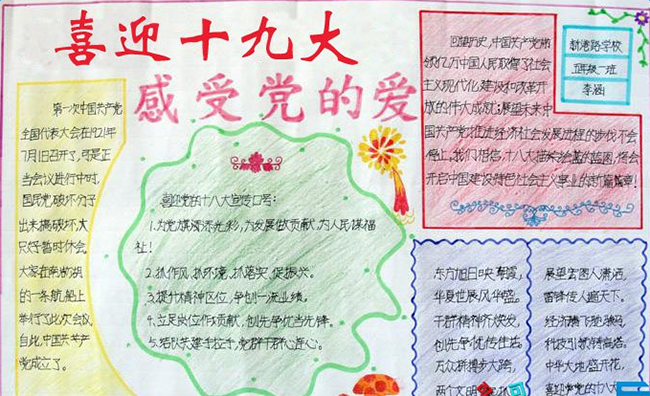 喜迎十九大
感受党的爱
新港路学校
五年级一班
李涵
回望历史,中国共产党带
领亿万中国人民取得了社会
主义现代化建设和改革开
放的伟大成就;展望未来中
国共产党推进经济社会发展进程的步伐不会
停止,我们相信,十八大描绘的蓝图,将会
开启中国建设特色社会主义事业的新篇章!
第一次中国共产党
全国代表大会在1921年
7月1日召开了,可是正
当会议进行中时,
国民党破坏分子
出来搞破坏,大
只好暂时休会
大家在南湖
的一条航船上
举行了此次会议
自此,中国共产
党成立了。
喜迎党的十八大宣传口号:
1.为党旗添光彩,为发展做贡献,为人民谋福
祉!
2.抓作风,抓环境,抓落实,促振兴。
3.提升精神区位,争创一流业绩。
4.立足岗位作贡献,创先争优当先锋。
5.结队共建手拉手,党群干群心连心。
东方旭日映春霞,
华夏世展风华盛。
干群精神齐焕发,
创先争优传佳话。
万众挢搏步大跨,
两个文明
展望宏图人潇洒,
雷锋传人遍天下。
经济腾飞驰骏马,
科技引领
中华大地盛开花,
喜迎党的十八大